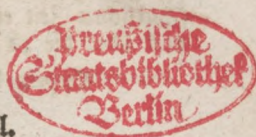 Preußische
Staatsbibliothek
Berlin
l.